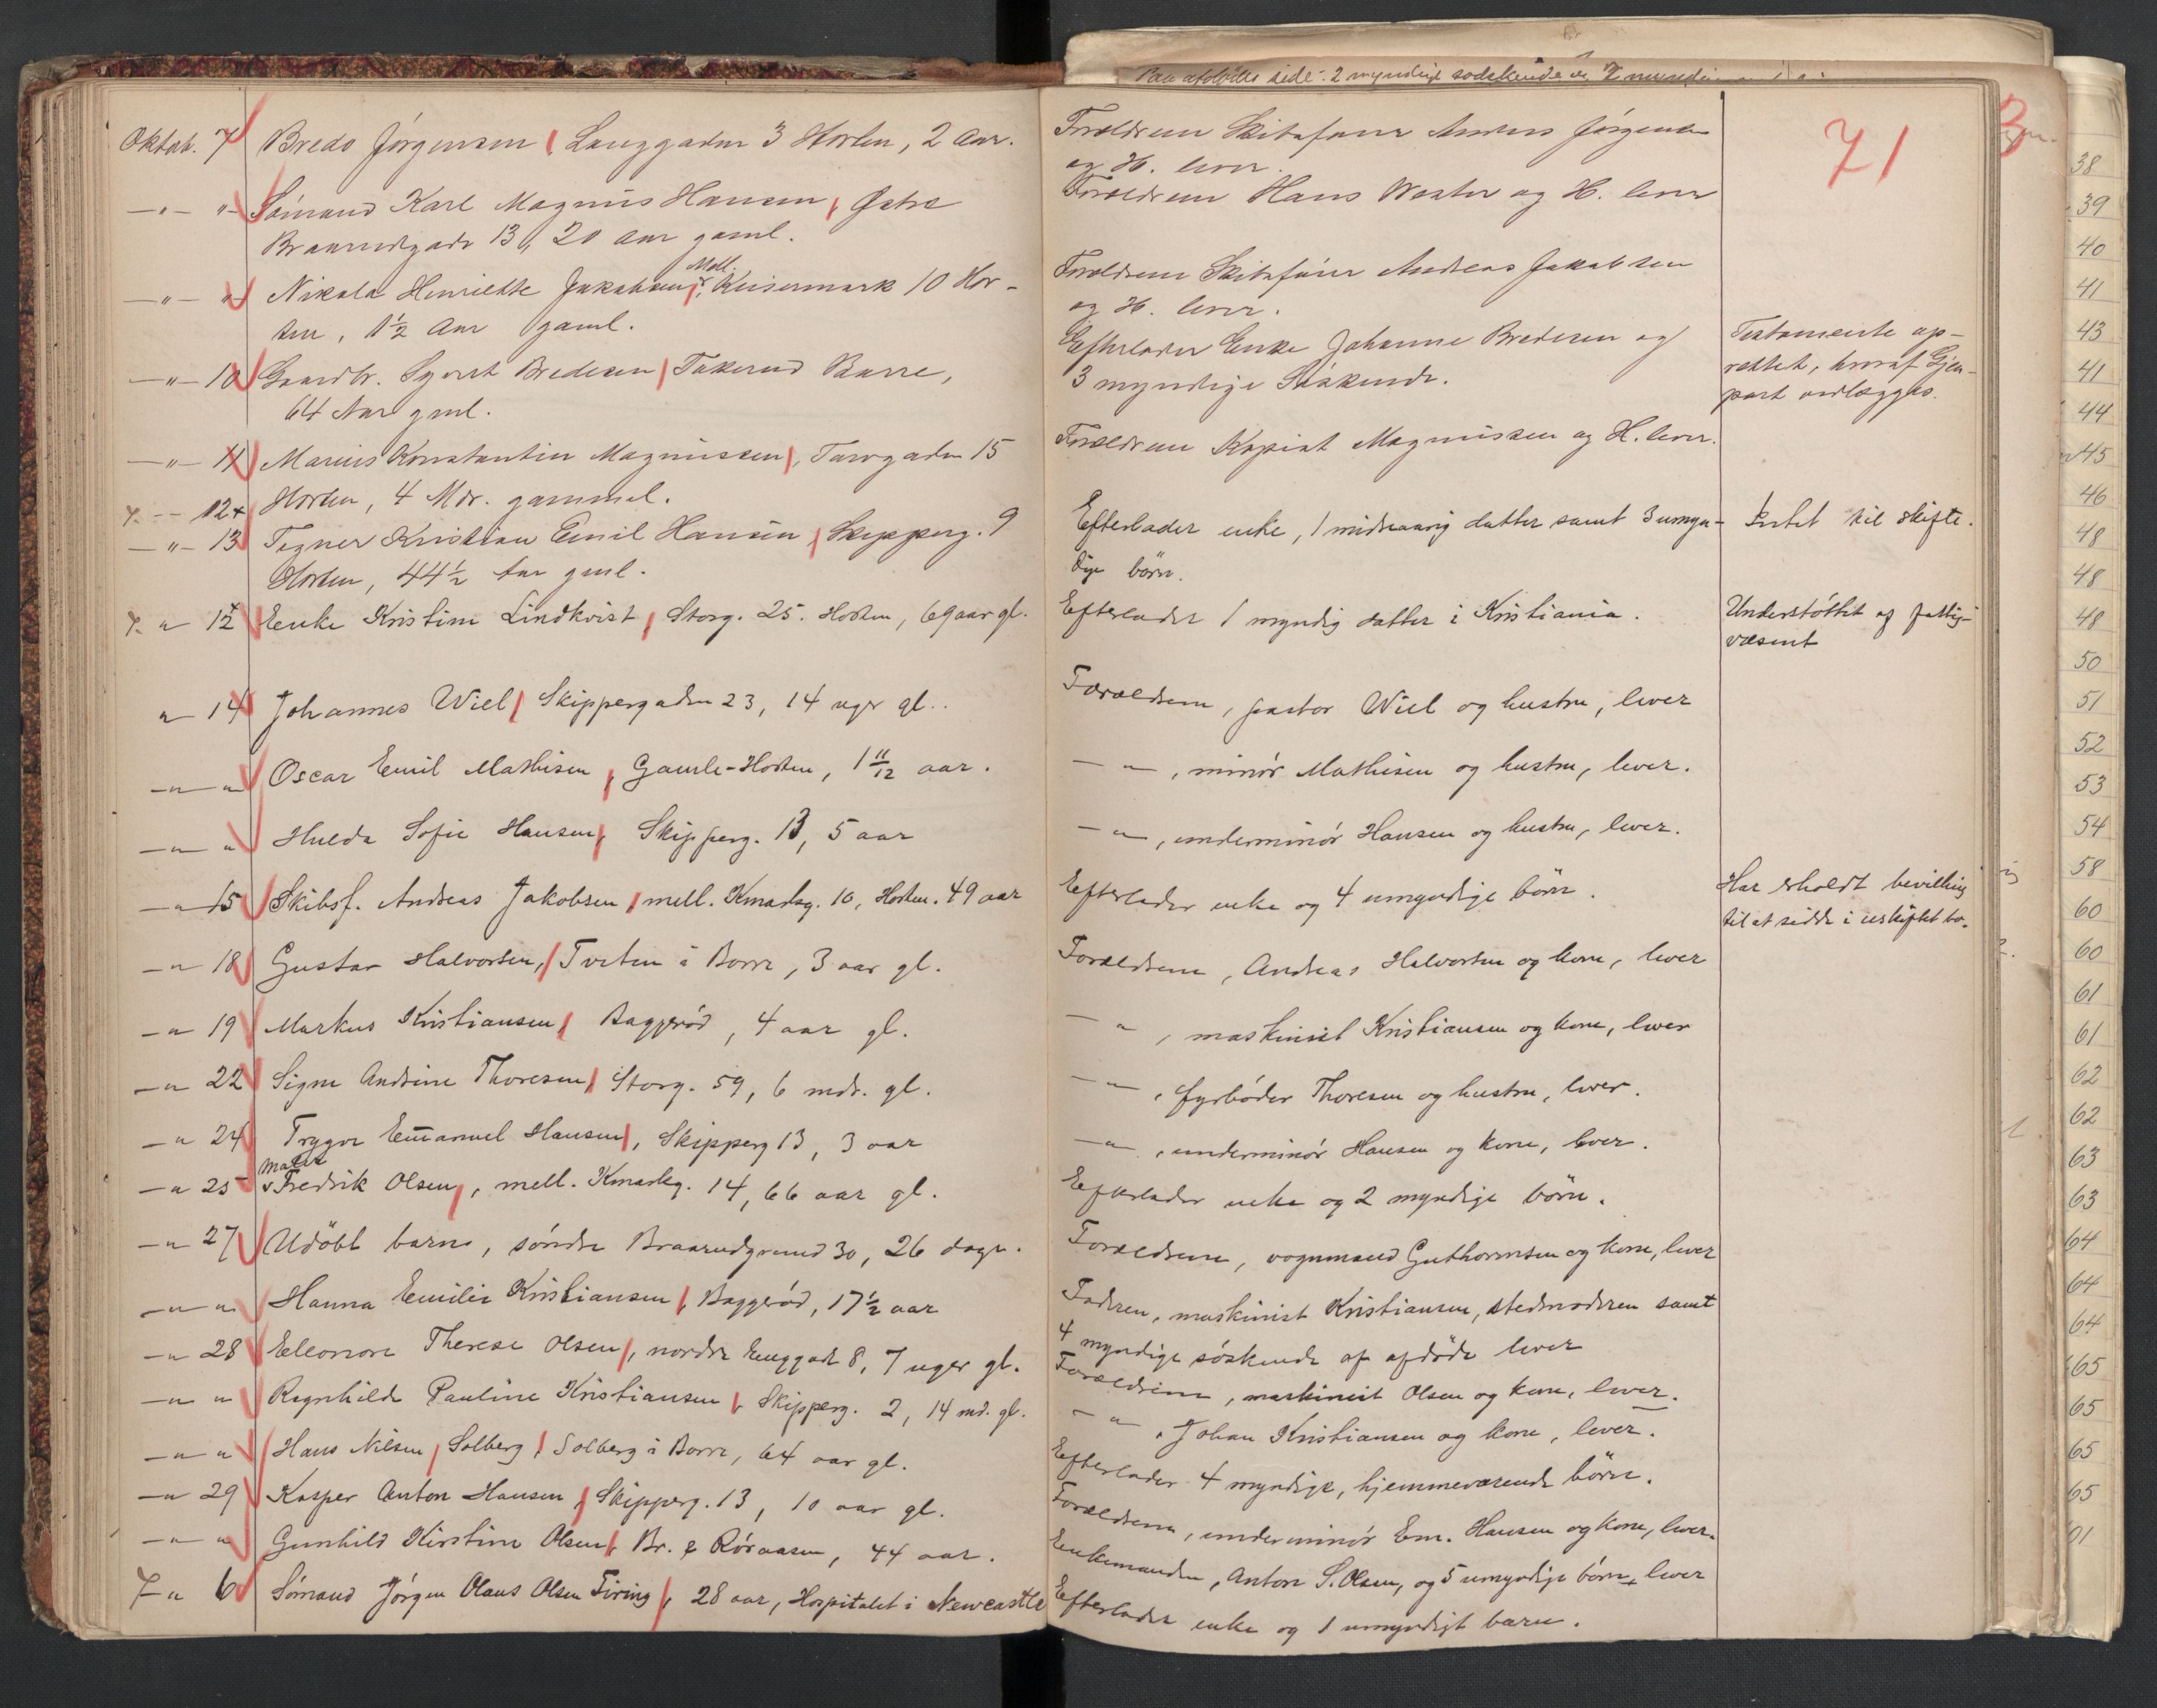 Oktob. 7 Bredo Jørgensen, Langgaden 3 Horten, 2 Aar.
—"— "— Sømand Karl Magnus Hansen, Østre
Braarudgade 13, 20 Aar gaml.
Mell.
—"— "— Nikola Henriette Jakobsen, Keisermark 10 Hor-
ten, 1½ Aar gaml.
—"— 10 Gaardbr. Syvert Bredesen, Takerud Borre,
64 Aar gml.
—"— 11 Marius Konstantin Magnussen, Torvgaden 15
Horten, 4 Mdr. gammel.
—"— 12+
—"— 13 Tegner Kristian Emil Hansen, Skipperg. 9
Horten, 44½ Aar gml.
" 12 Enke Kristine Lindkvist, Storg. 25. Horten, 69 aar gl.
" 14 Johannes Wiel, Skippergaden 23, 14 uger gl..
—"— " Oscar Emil Mathisen, Gamle-Horten, 1 11/12 aar.
—"— " Hulda Sofie Hansen, Skipperg. 13, 5 aar
—" 15 Skibsf. Andreas Jakobsen, mell. Kmarkg. 10, Horten. 49 aar
—" 18 Gustav Halvorsen, Tveten i Borre, 3 aar gl.
—" 19 Markus Kristiansen, Baggerød, 4 aar gl.
—" 22 Signe Andrine Thoresen, Storg. 59, 6 mdr. gl.
—" 24 Trygve Emanuel Hansen, Skipperg 13, 3 aar
—" 25 Fredrik Olsen, mell. Kmarkg. 14, 66 aar gl.
—" 27 Udöbt barn, søndre Braarudgrund 30, 26 dage.
—"— " Hanna Emilie Kristiansen, Baggerød, 17½ aar
—" 28 Eleonore Therese Olsen, nordre Enggade 8, 7 uger gl.
—" " Ragnhild Pauline Kristiansen, Skipperg. 2, 14 md. gl.
—"— " Hans Nilsen, Solberg, Solberg i Borre, 64 aar gl.
—" 29 Kasper Anton Hansen, Skipperg. 13, 10 aar gl.
—"— " Gunhild Kirstine Olsen, Br. & Röraasen, 44 aar.
" 6 Sømand Jørgen Olaus Olsen Firing, 28 aar, Hospitalet i Newcastle
side. 2 myndige
Forældrene Skibsfører Anders Jørgensen
og H. lever.
Forældrene Hans Wester og H. lever
Forældrene Skibsfører Andreas Jakobsen
og H. lever.
Efterlader Enke Johanne Bredesen og
3 myndige Søskende.
Forældrene Kopist Magnussen og H. lever.
Efterlader enke, 1 mindreaarig datter samt 3 umyn-
dige börn.
Efterlader 1 myndig datter i Kristiania.
Forældrene, pastor Wiel og hustru, lever
— " —, minör Mathisen og hustru, lever.
— " —, underminör Hansen og hustru, lever.
Efterlader enke og 4 umyndige börn.
Forældrene, Andreas Halvorsen og kone, lever
— " , maskinist Kristiansen og kone, lever
— " —, fyrbøder Thoresen og hustru, lever.
— " —, underminör Hansen og kone, lever.
Efterlader enke og 2 myndige börn.
Forældrene, vognmand Guthormsen og kone, lever
Faderen, maskinist Kristiansen, stedmoderen samt
4 myndige søskende af afdöde lever
Forældrene, maskinist Olsen og kone, lever.
— " —, Johan Kristiansen og kone, lever.
Efterlader 4 myndige, hjemmeværende börn.
Forældrene, underminör Em. Hansen og kone, lever.
Enkemanden, Anton S. Olsen, og 5 umyndige börn, lever
Efterlader enke og 1 umyndigt barn.
71
Testamente op-
rettet, hvoraf Gjen-
part vedlægges.
Intet til skifte.
Understøttet af fattig-
væsenet
Har erholdt bevilling
til at sidde i uskiftet bo.
3
38
39
40
41
43
41
44
45
46
48
48
48
50
51
52
53
54
58
60
60
61
61
62
62
63
63
64
64
64
65
65
65
65